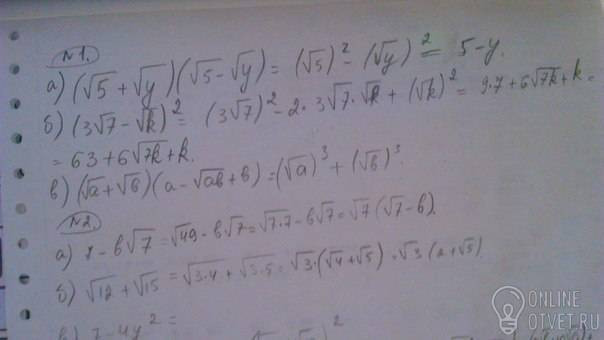 №1.
а) (√5 + √y)(√5 - √y) = (√5)² - (√y)² = 5 - y.
б) (3√7 - √k)² = (3√7)² - 2·3√7·√k + (√k)² = 9·7 + 6√7k + k =
= 63 + 6√7k + k.
в) (√a + √b)(a - √ab + b) = (√a)³ + (√b)³.
№2.
а) 7 - b√7 = √49 - b√7 = √7·7 - b√7 = √7(√7 - b).
б) √12 + √15 = √3·4 + √3·5 = √3·(√4 + √5) = √3(2 + √5)
в) 7 - 4y² =
ONLINE
OTVET.RU